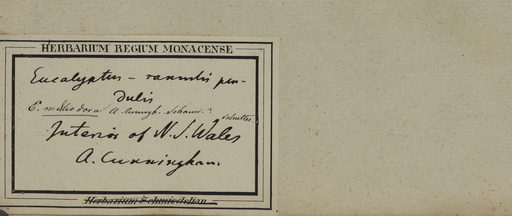 HERBARIUM REGIUM MONACENSE
Eucalyptus – ramulis pen-
dulis
E. melliodora A. Cunngh. Schauer
Interior of N. S. Wales
A. Cunningham.
Herbarium Schmiedelian